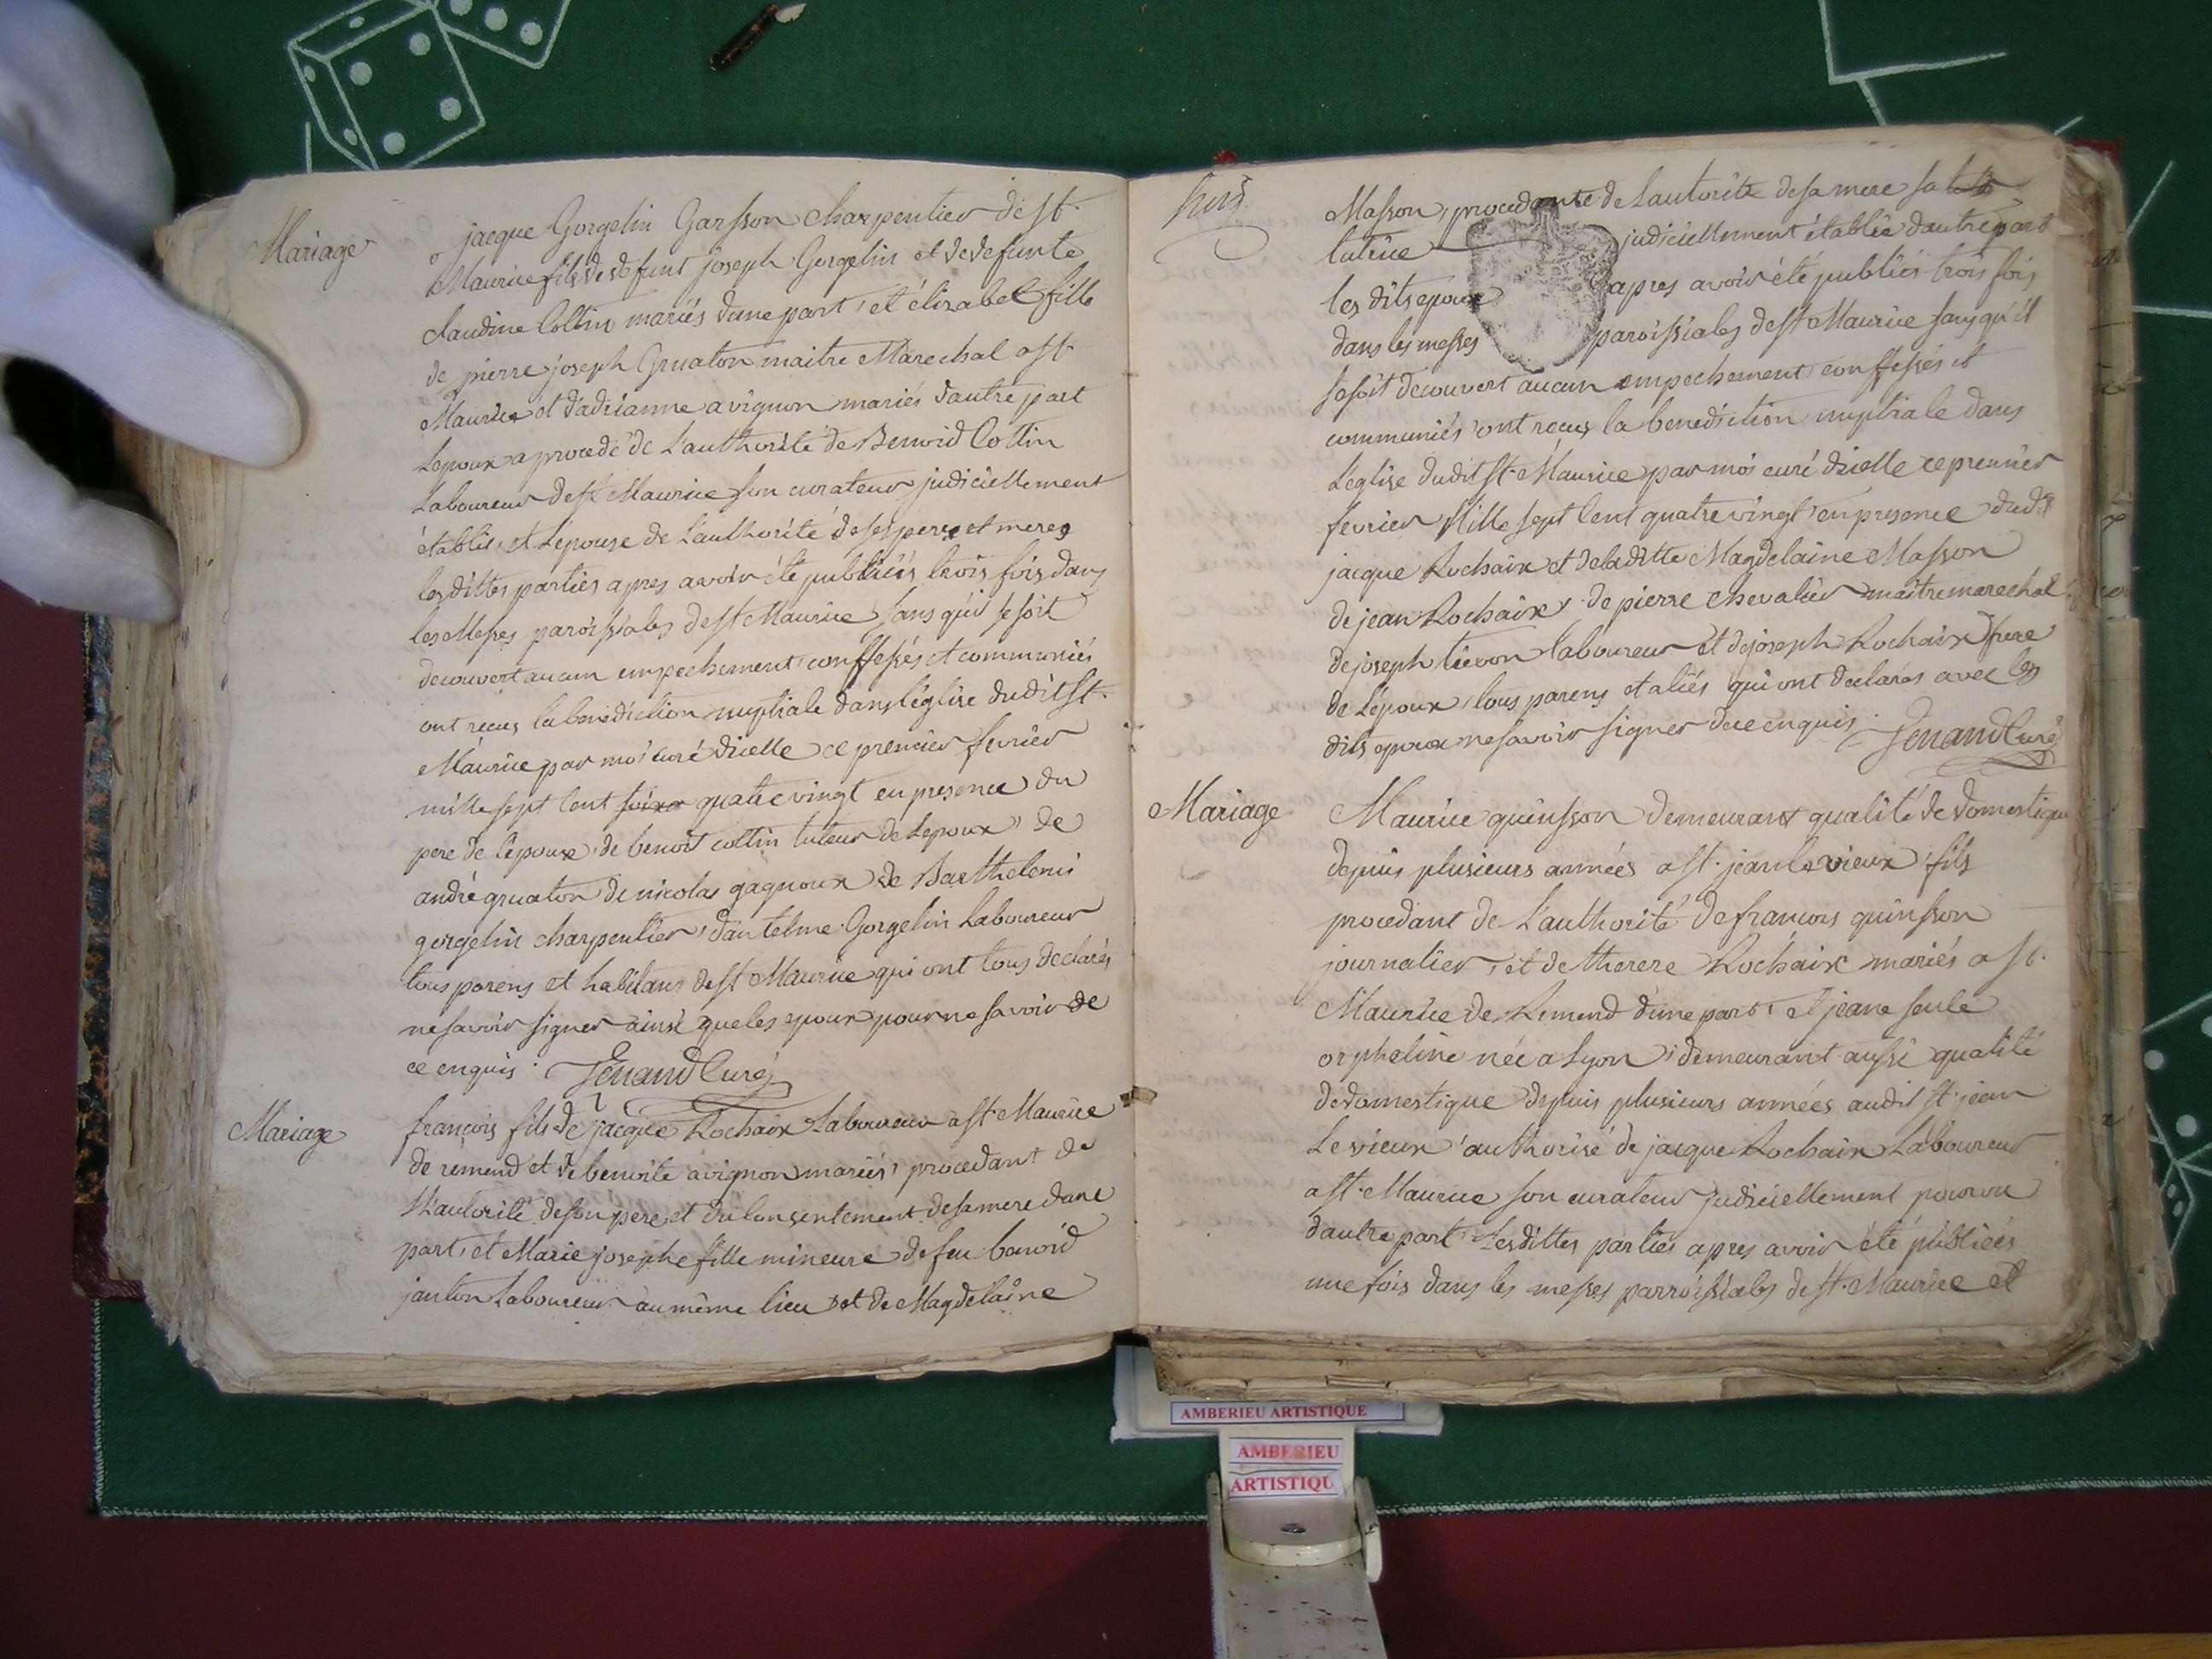 Mariage
jacque Gorgelin Garsson charpentier de st.
Maurice fils de defunt joseph Gorgelin et de defunte
claudine Cottin mariés dune part, et élizabet fille
de pierre joseph Gruaton maitre Marechal a st.
Maurice et d'adrianne avignon mariés d'autre part
Lepoux a procedé de L'authorité de Benoid Cottin
Laboureur de st Maurice son curateur judiciellement
établis, et L'epouse de L'authorité de ses pere et mere
lesdittes parties apres avoir été publiées trois fois dans
les Messes paroissiales de st Maurice sans qu'il se soit
decouvert aucun empechement, confessés et communiés
ont recus la benediction nuptiale dans l'église dudit St.
Maurice par moi curé d'icelle ce premier fevrier
mille sept Cent quatre vingt en presence du
pere de l'epouse, de benoit cottin tuteur de Lepoux, de
andré gruaton de nicolas gagnoux de Barthelemi
gorgelin charpentier, d'antelme Gorgelin Laboureur
tous parens et habitans de st Maurice qui ont tous declarés
ne savoir signer ainsi que les epoux pour ne savoir de
ce enquis. Jenand Curé
Mariage
françois fils de jacque Rochaix Laboureur a st Maurice
de remend et de benoite avignon mariés, procedant de
L'autorité de son pere et du Consentement de sa mere dune
part, et Marie josephe fille mineure de feu benoid
janton Laboureur au même lieu et de Magdelaine
Masson, procedante de Lautorité de sa mere sa
tutrice judiciellement établie d'autre part
les dits epoux apres avoir été publiés trois fois
dans les messes paroissiales de st Maurice sans qu'il
se soit decouvert aucun empechement, confessés et
communiés ont recus la benediction nuptiale dans
L'église dudit St. Maurice par moi curé d'icelle ce premier
fevrier Mille sept Cent quatre vingt en presence dud.
jacque Rochaix et de laditte Magdelaine Masson
de jean Rochaix, de pierre chevalier maitre marechal
de joseph laboureur et de joseph Rochaix frere
de L'epoux, tous parens et aliés qui ont declarés avec les
dits epoux ne savoir signer de ce enquis. Jenand Curé
Mariage
Maurice quinsson demeurant qualité de domestique
depuis plusieurs années a st. jean le vieux fils
procedant de L'authorité de francois quinsson
journalier, et de therere Rochaix mariés a st.
Maurice de Remend d'une part, et jeane seule
orpheline née a Lyon, demeurant aussi qualité
de domestique depuis plusieurs années audit st. jean
Le vieux, authorisé de jacque Rochaix Laboureur
a st. Maurice son curateur judiciellement pourvu
d'autre part. Lesdittes parties apres avoir été publiées
une fois dans les messes parroissiales de st. Maurice et
AMBERIEU ARTISTIQUE
AMBERIEU
ARTISTIQU